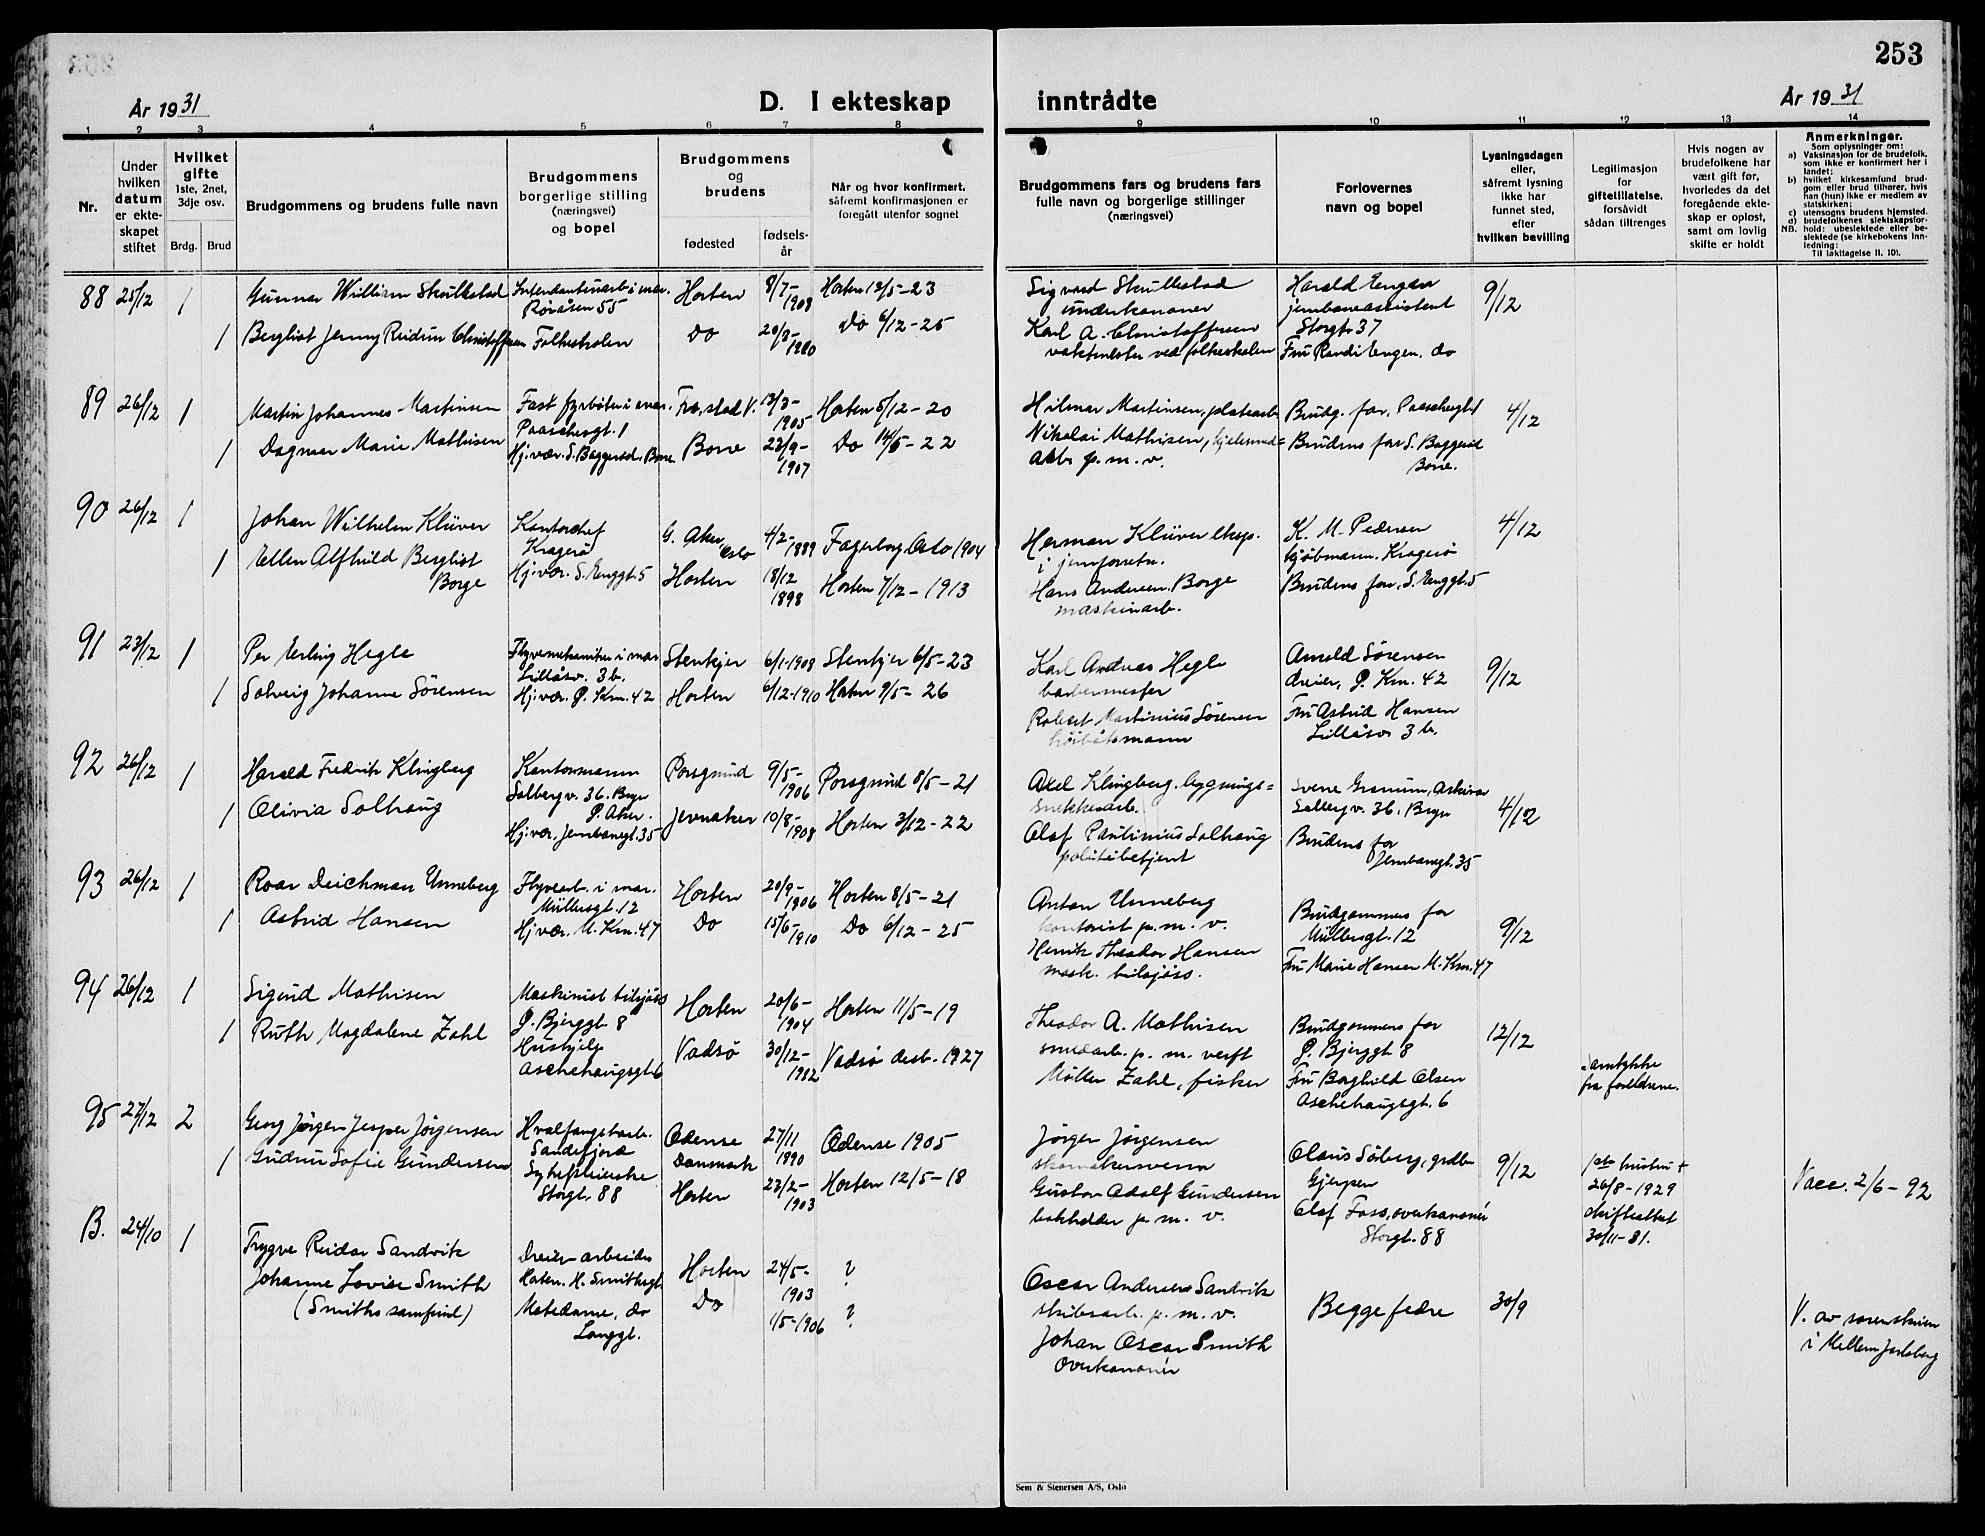 253
År 1931
D. I ekteskap inntrådte
År 1931
1 2 3 4 5 6 7 8 9 10 11 12 13 14
Nr.
Under hvilken datum er ekteskapet stiftet
Hvilket gifte
1ste, 2net, 3dje osv.
Brdg. Brud
Brudgommens og brudens fulle navn
Brudgommens borgerlige stilling (næringsvei) og bopel
Brudgommens og brudens
fødested
fødselsår
Når og hvor konfirmert, såfremt konfirmasjonen er foregått utenfor sognet
Brudgommens fars og brudens fars fulle navn og borgerlige stillinger (næringsvei)
Forlovernes navn og bopel
Lysningsdagen eller, såfremt lysning ikke har funnet sted, efter hvilken bevilling
Legitimasjon for giftetillatelse, forsåvidt sådan tiltrenges
Hvis nogen av brudefolkene har vært gift før, hvorledes da det foregående ekteskap er opløst, samt om lovlig skifte er holdt
Anmerkninger.
Som oplysninger om:
a) Vaksinasjon for de brudefolk, som ikke er konfirmert her i landet;
b) hvilket kirkesamfund brudgom eller brud tilhører, hvis han (hun) ikke er medlem av statskirken;
c) utensogns brudens hjemsted.
d) brudefolkenes slektskapsforhold: ubeslektede eller beslektede (se kirkebokens innledning:
NB. Til iakttagelse II. 10).
88 25/12 1 Gunnar William Skullestad
Røråsen 55
Horten 8/7-1908 Horten 13/5-23
Sigvard Skullestad
underkanoner
Harald Engen
jernbaneassistent
Storgt. 37
9/12
1 Bergliot Jenny Reidun Christoffersen Folkeskolen
Do 20/8-1910 Do 6/12-25
Karl A. Christoffersen
vaktmester ved folkeskolen
Fru Randi Engen. do
89 26/12 1 Martin Johannes Martinsen
Fast fyrbøter i mar.
Paaschesgt. 1
Fr.stad V. 13/3-1905 Horten 5/12-20
Hilmar Martinsen, platearb.
Brudg. far, Paaschesgt 1
4/12
1 Dagmar Marie Mathisen
Hj.vær. S. Baggerød. Borre.
Borre 23/9-1907 Do 14/5-22
Nikolai Mathisen, kjelesmed=
arb. p. m. v.
Brudens far S. Baggerød
Borre.
90 26/12 1 Johan Wilhelm Klüver
Kontorchef
Kragerø
G. Aker, Oslo 4/2-1889 Fagerborg Oslo 1904
Herman Klüver eksp.
i jernforretn.
K. M. Pedersen
kjøbmann. Kragerø
4/12
1 Ellen Alfhild Bergliot
Borge
Hj.vær. S. Enggt. 5
Horten 18/12 1898 Horten 7/12-1913
Hans Andersen Borge
maskinarb.
Brudens far, S. Enggt. 5
91 23/12 1 Per Erling Hegle
Flyvemekaniker i mar
Lillåsv. 3b.
Stenkjer 6/1-1908 Stenkjer 6/5-23
Karl Andreas Hegle
barbermester
Arnold Sørensen
dreier, P. Km. 42
9/12
1 Solveig Johanne Sørensen
Hj.vær. P. Km. 42
Horten 6/12-1910 Horten 9/5-26
Robert Martinius Sørensen
høibåtsmann
Fru Astrid Hansen
Lillåsv 3 b.
92 26/12 1 Harald Fredrik Klingberg
Kontormann
Solbergv. 36. Bryn
Ø. Aker.
Porsgrund 9/5-1906 Porsgrund 8/5-21
Axel Klingberg. bygnings=
snekkerarb.
Solbergv. 36. Bryn
4/12
1 Olivia Solhaug
Hj.vær. Jernbanegt. 35
Jevnaker 10/8-1908 Horten 3/12-22
Olaf Paulinius Solhaug
politibetjent
Brudens far
Jernbanegt. 35
93 26/12 1 Roar Deichman Unneberg
Flyvearb. i mar.
Müllersgt. 12
Horten 20/9-1906 Horten 8/5-21
Anton Unneberg
kontorist p. m. v.
Brudgommens far
Müllersgt. 12
9/12
1 Astrid Hansen
Hj.vær. M. Km. 47
Do 15/6-1910 Do 6/12-25
Henrik Theodor Hansen
mask. tilsjøss.
Fru Marie Hansen M. Km. 47
94 26/12 1 Sigurd Mathisen
Maskinist tilsjøss
P. Bjerggt. 8
Horten 20/6-1904 Horten 11/5-19
Theodor A. Mathisen
smedarb. p. m. verft
Brudgommens far
P. Bjerggt. 8
12/12
1 Ruth Magdalene Zahl
Hushjelp
Aschehaugsgt. 6
Vadsø 30/12-1912 Vadsø desb. 1927
Møller Zahl, fisker
Fru Borghild Olsen
Aschehaugsgt. 6
Samtykke
fra foreldrene.
95 27/12 2 Georg Jørgen Jesper Jørgensen
Hvalfangstarb.
Sandefjord
Odense
Danmark
27/11 1890 Odense 1905
Jørgen Jørgensen
skomakersvenn
Claus Søberg, grdbr.
Gjerpen
9/12
1ste hustru +
26/8-1929
skifteattest
30/11-31.
Vacc. 2/6-92
1 Gudrun Sofie Gundersen
Sykepleierske
Storgt. 88
Horten 23/2-1903 Horten 12/5-18
Gustav Adolf Gundersen
bokholder p. m. v.
Olaf Foss, overkanonér
Storgt. 88
B. 24/10 1 Trygve Reidar Sandvik
Dreierarbeider
Horten. H. Smithsgt.
Horten 24/5-1903 ?
Oscar Andersen Sandvik
skibsarb. p. m. v.
Begge fedre
30/9
V. av sorenskriver
i Mellem Jarlsberg
Johanne Lovise Smith
(Smiths samfund)
Matedame, do
Langgt.
Do 1/5-1906 ?
Johan Oscar Smith
overkanonér
Sem & Stenersen A/S, Oslo